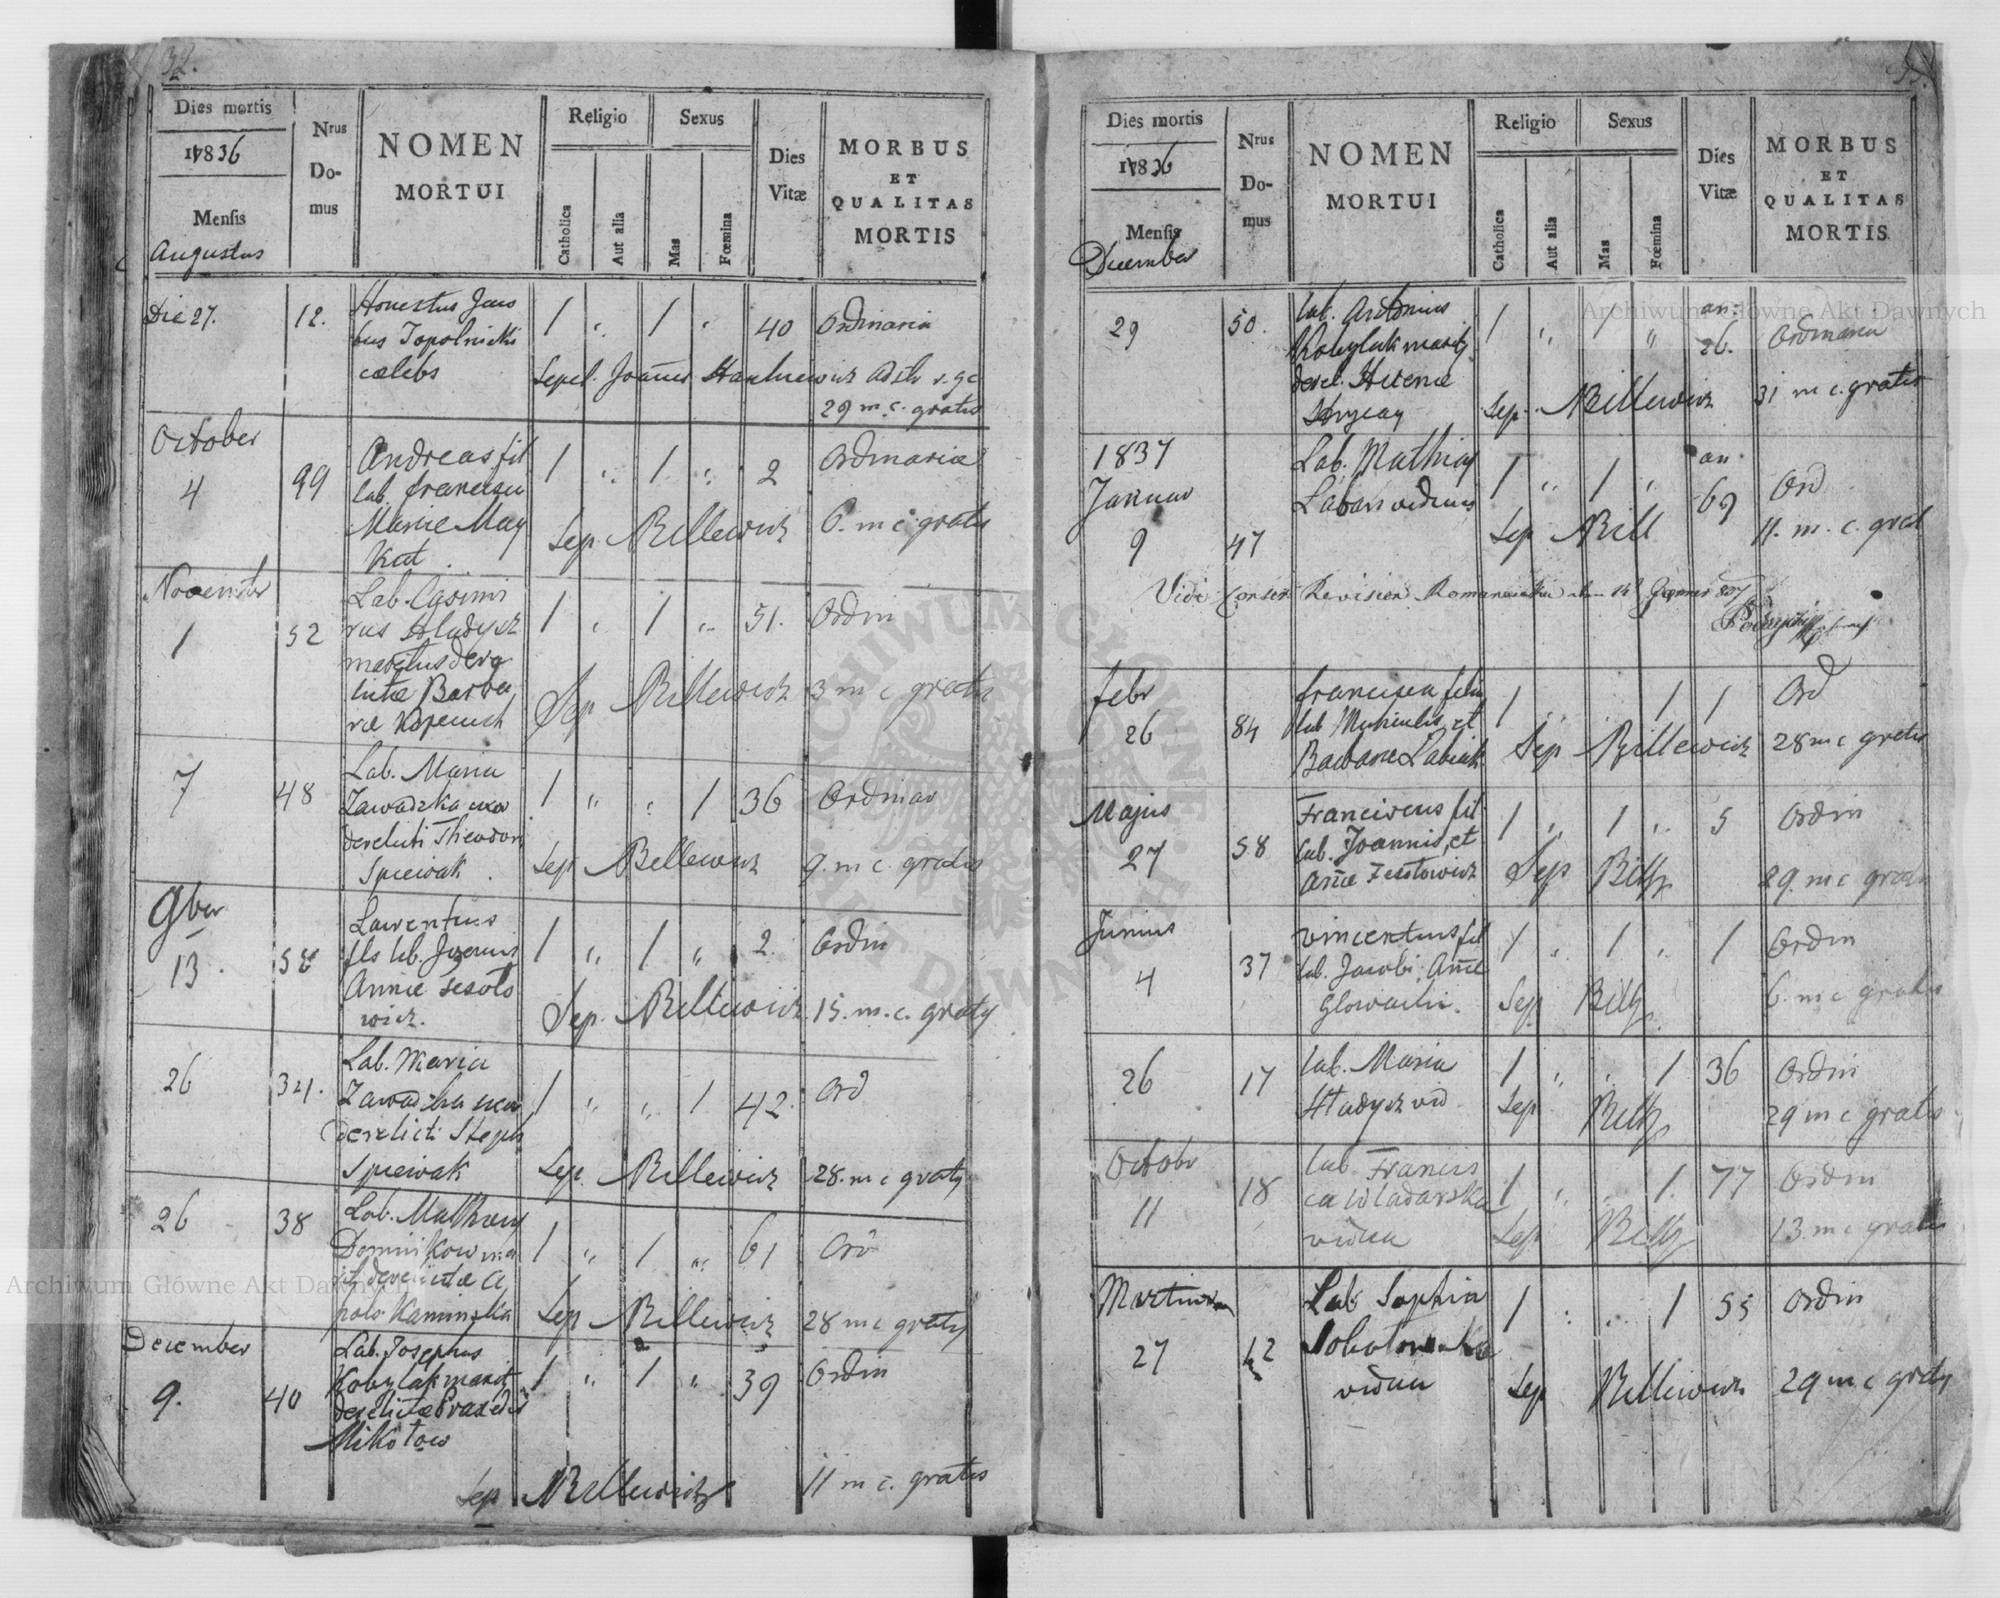 32.
Dies mortis
1836
Mensis
Augustus
Nrus
Do-
mus
NOMEN
MORTUI
Religio
Catholica
Aut alia
Sexus
Mas
Fœmina
Dies
Vitæ
MORBUS
ET
QUALITAS
MORTIS
Die 27. 12. Honestus Jaco 1 " 1 " 40 Ordinaria
bus Topolnicki
cælebs Sepel. Joannes
29 m. c. gratis
October
4 99 Andreas fil 1 " 1 " 2 Ordinaria
lab. Francisci
Mariæ May Sep. Billewicz 6. m c gratis
kut.
November
1 52 Lab. Casimi 1 " 1 " 51. Ordin
rus Hladysz
maritus dere
lictæ Barba Sep Billewicz 3 m c gratis
ræ
7 48 Lab. Maria
Zawadzka uxor 1 " " 1 36 Ordinar
derelicti Theodori
Spiewak. Sep Billewicz 9. m c. gratis
9ber
13. 58 Laurentius 1 " 1 " 2. Ordin
fls lab. Joannis
Annæ Sesoto
wicz. Sep. Billewicz 15. m. c. gratis
26 321. Lab. Maria
Zawadzka uxor 1 " " 1 42. Ord
derelicti Steph
Spiewak Sep. Billewicz 28. m c gratis
26 38 Lab. Mathæus
Dominikow ma 1 " 1 " 61 Ord
rit derelictæ A
polo Kaminska Sep Billewicz 28 m c gratis
December
9. 40 Lab. Josephus
Kobylak marit 1 " 1 " 39 Ordin
derelictæ Praxedis
Mikołow
Sep Billewicz 11 m c. gratis
Dies mortis
1836
Mensis
December
Nrus
Do-
mus
NOMEN
MORTUI
Religio
Catholica
Aut alia
Sexus
Mas
Fœmina
Dies
Vitæ
MORBUS
ET
QUALITAS
MORTIS
29 50. Lab. Antonius 1 " 1 " an. 26. Ordinaria
Kobylak marit
derel. Helenæ Sep. Billewicz 31 m c. gratis
1837
Januar
9 47 Lab. Mathias 1 " 1 " an 69 Ord
Laban viduus
Sep Bill 11. m. c. grat
Vidi Revision
febr
26 84 francisca filia 1 " " 1 1 Ord
lab et
Barbaræ Labiak Sep Billewicz 28 m c gratis
Majus
27 58 Franciscus fil 1 " 1 " 5 Ordin
lab. Joannis et
Annæ Sep Billz 29. m c gratis
Junius
4 37 Vincentius fil 1 " 1 " 1 Ordin
lab. Jacobi, Annæ
Glowacki. Sep Billz. 6. m c gratis
26 17 lab. Maria 1 " " 1 36 Ordin
Hładysz vid Sep Billz 29 m c gratis
Octobr
11 18 lab Francis
ca Wladarska 1 " " 1. 77 Ordin
vidua Sep Billz 13. m c gratis
27 12 Lab Sophia 1 " " 1 55 Ordin
Sobotowska
vidua Sep Billewicz 29 m c gratis
Archiwum Główne Akt Dawnych
Archiwum Główne Akt Dawnych
ARCHIWUM GŁÓWNE AKT DAWNYCH